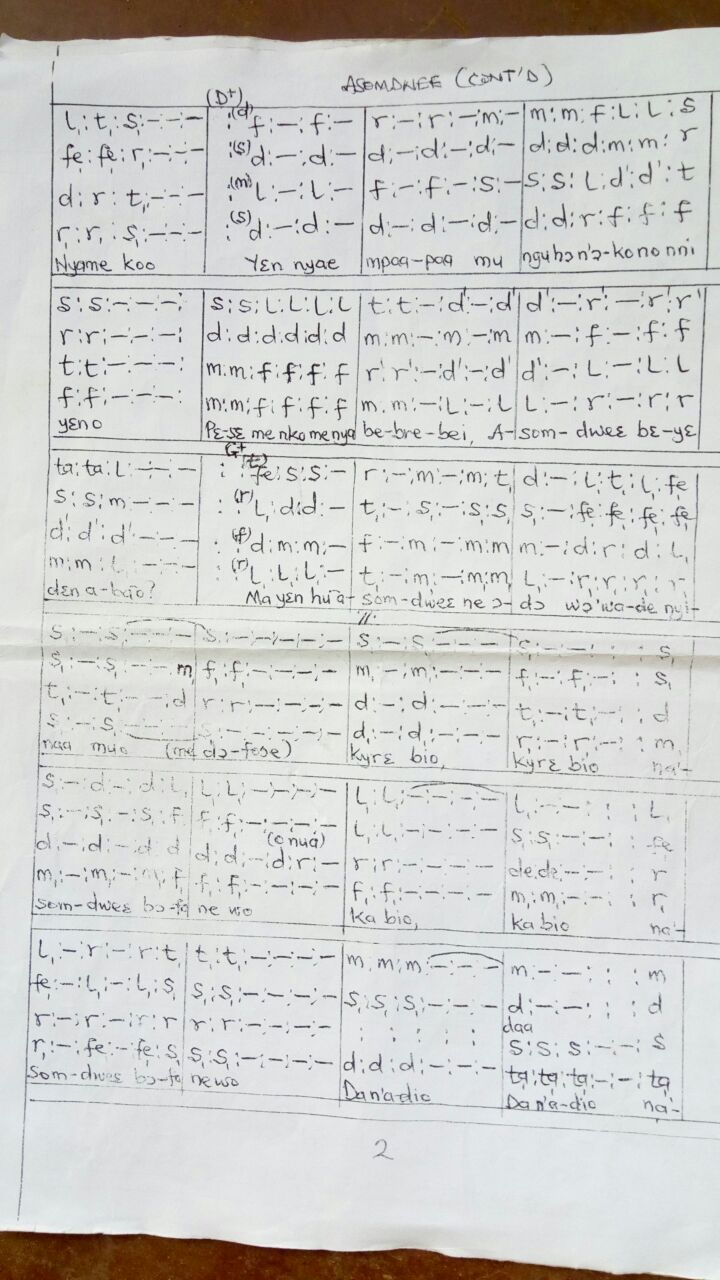 ASOMDWEE (CONT'D)
(D+)
l, : t, : s, : – : – : – | : (d) f : – : f : – | r : – : r : – : m : – | m : m : f : l : l : s
fe, : fe, : r, : – : – : – | : (s) d : – : d : – | d : – : d : – : d : – | d : d : d : m : m : r
d : r : t, : – : – : – | : (m) l : – : l : – | f : – : f : – : s : – | s : s : l : d' : d' : t
r, : r, : s, : – : – : – | : (s) d : – : d : – | d : – : d : – : d : – | d : d : r : f : f : f
Nyame koo | Yɛn nyae | mpaa-paa mu | nguhɔn'ɔ-kono nni
s : s : – : – : – : | s : s : l : l : l : l | t : t : – : d' : – : d' | d' : – : r' : – : r' : r'
r : r : – : – : – : | d : d : d : d : d : d | m : m : – : m : – : m | m : – : f : – : f : f
t : t : – : – : – : | m : m : f : f : f : f | r' : r' : – : d' : – : d' | d' : – : l : – : l : l
f : f : – : – : – : | m : m : f : f : f : f | m : m : – : l : – : l | l : – : r : – : r : r
yɛn o | Pɛ-sɛ me nko me nya | be-bre-bei, A- | som-dwɛɛ bɛ-yɛ
G+
ta : ta : l : – : – : – | : : (t) fe : s : s : – | r : – : m : – : m : t, | d : – : l, : t, : l, : fe,
s : s : m : – : – : – | : (r) l, : d : d : – | t, : – : s, : – : s, : s, | s, : – : fe, : fe, : fe, : fe,
d' : d' : d' : – : – : – | : (f) d : m : m : – | f : – : m : – : m : m | m : – : d : r : d : l,
m : m : l : – : – : – | : (r) l, : l, : l, : – | t, : – : m, : – : m, : m, | l, : – : r, : r, : r, : r,
dɛn a-ba̅o? | Ma yɛn hu a- | som-dwɛɛ ne ɔ- | dɔ wɔ wa-de nyi-
s, : – : s, : – : – : – | s, : – : – : – : – | s, : – : s, : – : – : – | s, : – : – : : : s,
s, : – : s, : – : – : m, | f, : f, : – : – : – : – | m, : – : m, : – : – : – | f, : – : f, : – : : s,
t, : – : t, : – : – : d | r : r : – : – : – : – | d : – : d : – : – : – | t, : – : t, : – : : d
s, : – : s, : – : – : – | s, : – : – : – : – | d, : – : d, : – : – : – | r, : – : r, : – : : m,
naa muo | (me dɔ-foɔe) | Kyrɛ bio, | Kyrɛ bio na'-
s, : – : d : – : d : l, | l, : l, : – : – : – : – | l, : l, : – : – : – : – | l, : – : – : : : l,
s, : – : s, : – : s, : f, | f, : f, : – : – : – : – | l, : l, : – : – : – : – | s, : s, : – : – : : fe,
(o nua)
d : – : d : – : d : d | d : d : – : d : r : – | r : r : – : – : – : – | de : de : – : – : : r
m, : – : m, : – : m, : f, | f, : f, : – : – : – : – | f, : f, : – : – : – : – | m, : m, : – : – : : r,
som-dwɛɛ bɔ-fo | ne wo | Ka bio, | Ka bio na'-
l, : – : r : – : r : t, | t, : t, : – : – : – : – | m : m : m : – : – : – | m : – : – : : : m
fe, : – : l, : – : l, : s, | s, : s, : – : – : – : – | s, : s, : s, : – : – : – | d : – : – : : : d
daa
r : – : r : – : r : r | r : r : – : – : – : – | : : : : : | s, : s, : s, : – : – : s,
r, : – : fe, : – : fe, : s, | s, : s, : – : – : – : – | d : d : d : – : – : – | ta, : ta, : ta, : – : – : ta,
Som-dwɛɛ bɔ-fo | ne wo | Da n'a-dio | Da n'a-dio na'-
2